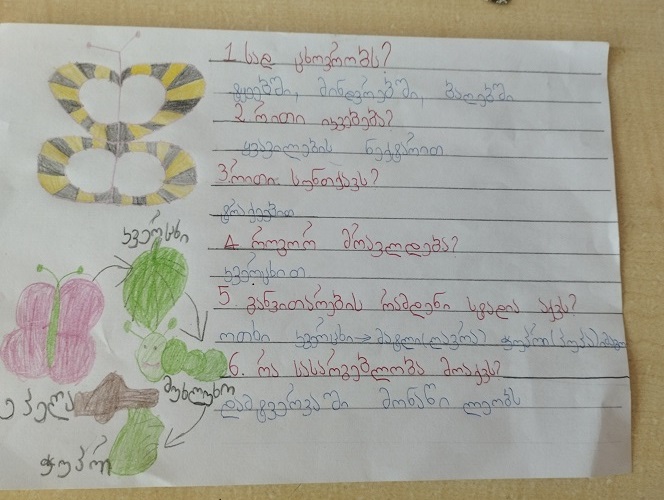 1 სად ცხოვრობს?
ტყეებში, მინდვრებში, ბაღებში
2. რითი იკვებება?
ყვავილების ნექტარით
3. რითი სუნთქავს?
ტრაქეებით
4 როგორ მრავლდება?
კვერცხით
5. განვითარების რამდენი სტადია აქვს?
ოთხი კვერცხი → მატლი(ლავრა) ჭუპრი(პუპა)
6. რა სასარგებლობა მოაქვს?
დამტვერვაში მონაწილეობს
კვერცხი
მუხლუხო
პეპელა
ჭუპრი